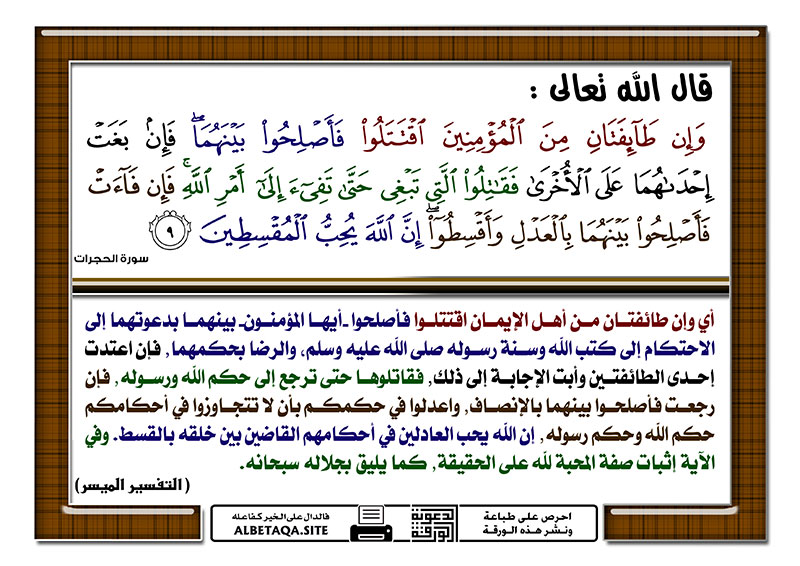 قال الله تعالى :
وَإِن طَآئِفَتَانِ مِنَ ٱلۡمُؤۡمِنِينَ ٱقۡتَتَلُواْ فَأَصۡلِحُواْ بَيۡنَهُمَاۖ فَإِنۢ بَغَتۡ
إِحۡدَىٰهُمَا عَلَى ٱلۡأُخۡرَىٰ فَقَٰتِلُواْ ٱلَّتِي تَبۡغِي حَتَّىٰ تَفِيٓءَ إِلَىٰٓ أَمۡرِ ٱللَّهِۚ فَإِن فَآءَتۡ
فَأَصۡلِحُواْ بَيۡنَهُمَا بِٱلۡعَدۡلِ وَأَقۡسِطُوٓاْۖ إِنَّ ٱللَّهَ يُحِبُّ ٱلۡمُقۡسِطِينَ ٩
سورة الحجرات
أي وإن طائفتان من أهل الإيمان اقتتلوا فأصلحوا -أيها المؤمنون- بينهما بدعوتهما إلى
الاحتكام إلى كتب الله وسنة رسوله صلى الله عليه وسلم, والرضا بحكمهما, فإن اعتدت
إحدى الطائفتين وأبت الإجابة إلى ذلك, فقاتلوها حتى ترجع إلى حكم الله ورسوله, فإن
رجعت فأصلحوا بينهما بالإنصاف, واعدلوا في حكمكم بأن لا تتجاوزوا في أحكامكم
حكم الله وحكم رسوله, إن الله يحب العادلين في أحكامهم القاضين بين خلقه بالقسط. وفي
الآية إثبات صفة المحبة لله على الحقيقة, كما يليق بجلاله سبحانه.
(التفسير الميسر)
احرص على طباعة
ونشر هذه الورقة
الورقة الدعوية
فالدال على الخير كفاعله
ALBETAQA.SITE